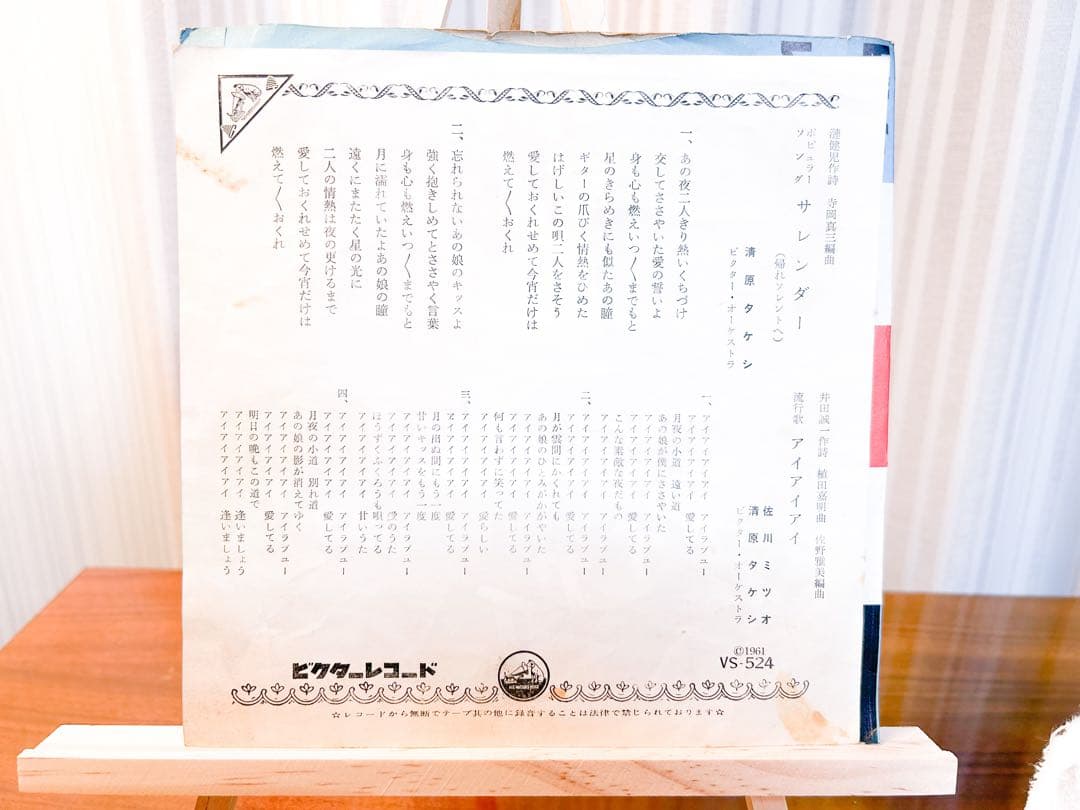 漣健児作詩 寺岡真三編曲
ポピュラーソング サレンダー
(帰れソレントへ)
清原タケシ
ビクター・オーケストラ
一、あの夜二人きり熱いくちづけ
交してささやいた愛の誓いよ
身も心も燃えいつ〳〵までもと
星のきらめきにも似たあの瞳
ギターの爪びく情熱をひめた
はげしいこの唄二人をさそう
愛しておくれせめて今宵だけは
燃えて〳〵おくれ
二、忘れられないあの娘のキッスよ
強く抱きしめてとささやく言葉
身も心も燃えいつ〳〵までもと
月に濡れていたよあの娘の瞳
遠くにまたたく星の光に
二人の情熱は夜の更けるまで
愛しておくれせめて今宵だけは
燃えて〳〵おくれ
井田誠一作詩 植田嘉明曲 佐野雅美編曲
流行歌 アイアイアイ
佐川ミツオ
清原タケシ
ビクター・オーケストラ
一、アイアイアイアイ アイラブユー
アイアイアイアイ 愛してる
月夜の小道 遠い道
あの娘が僕にささやいた
アイアイアイアイ アイラブユー
アイアイアイアイ 愛してる
こんな素敵な夜だもの
アイアイアイアイ アイラブユー
二、アイアイアイアイ アイラブユー
アイアイアイアイ 愛してる
月が雲間にかくれても
あの娘のひとみがかがやいた
アイアイアイアイ アイラブユー
アイアイアイアイ 愛してる
何も言わずに笑ってた
アイアイアイアイ 愛らしい
三、アイアイアイアイ アイラブユー
アイアイアイアイ 愛してる
月の出ぬ間にもう一度
甘いキッスをもう一度
アイアイアイアイ アイラブユー
アイアイアイアイ 愛のうた
ほうずくふくろうも唄ってる
アイアイアイアイ 甘いうた
四、アイアイアイアイ アイラブユー
アイアイアイアイ 愛してる
月夜の小道 別れ道
あの娘の影が消えてゆく
アイアイアイアイ アイラブユー
アイアイアイアイ 愛してる
明日の晩もこの道で
アイアイアイアイ 逢いましょう
アイアイアイアイ 逢いましょう
©1961
VS-524
ビクターレコード
HIS MASTER'S VOICE
☆レコードから無断でテープ其の他に録音することは法律で禁じられております☆